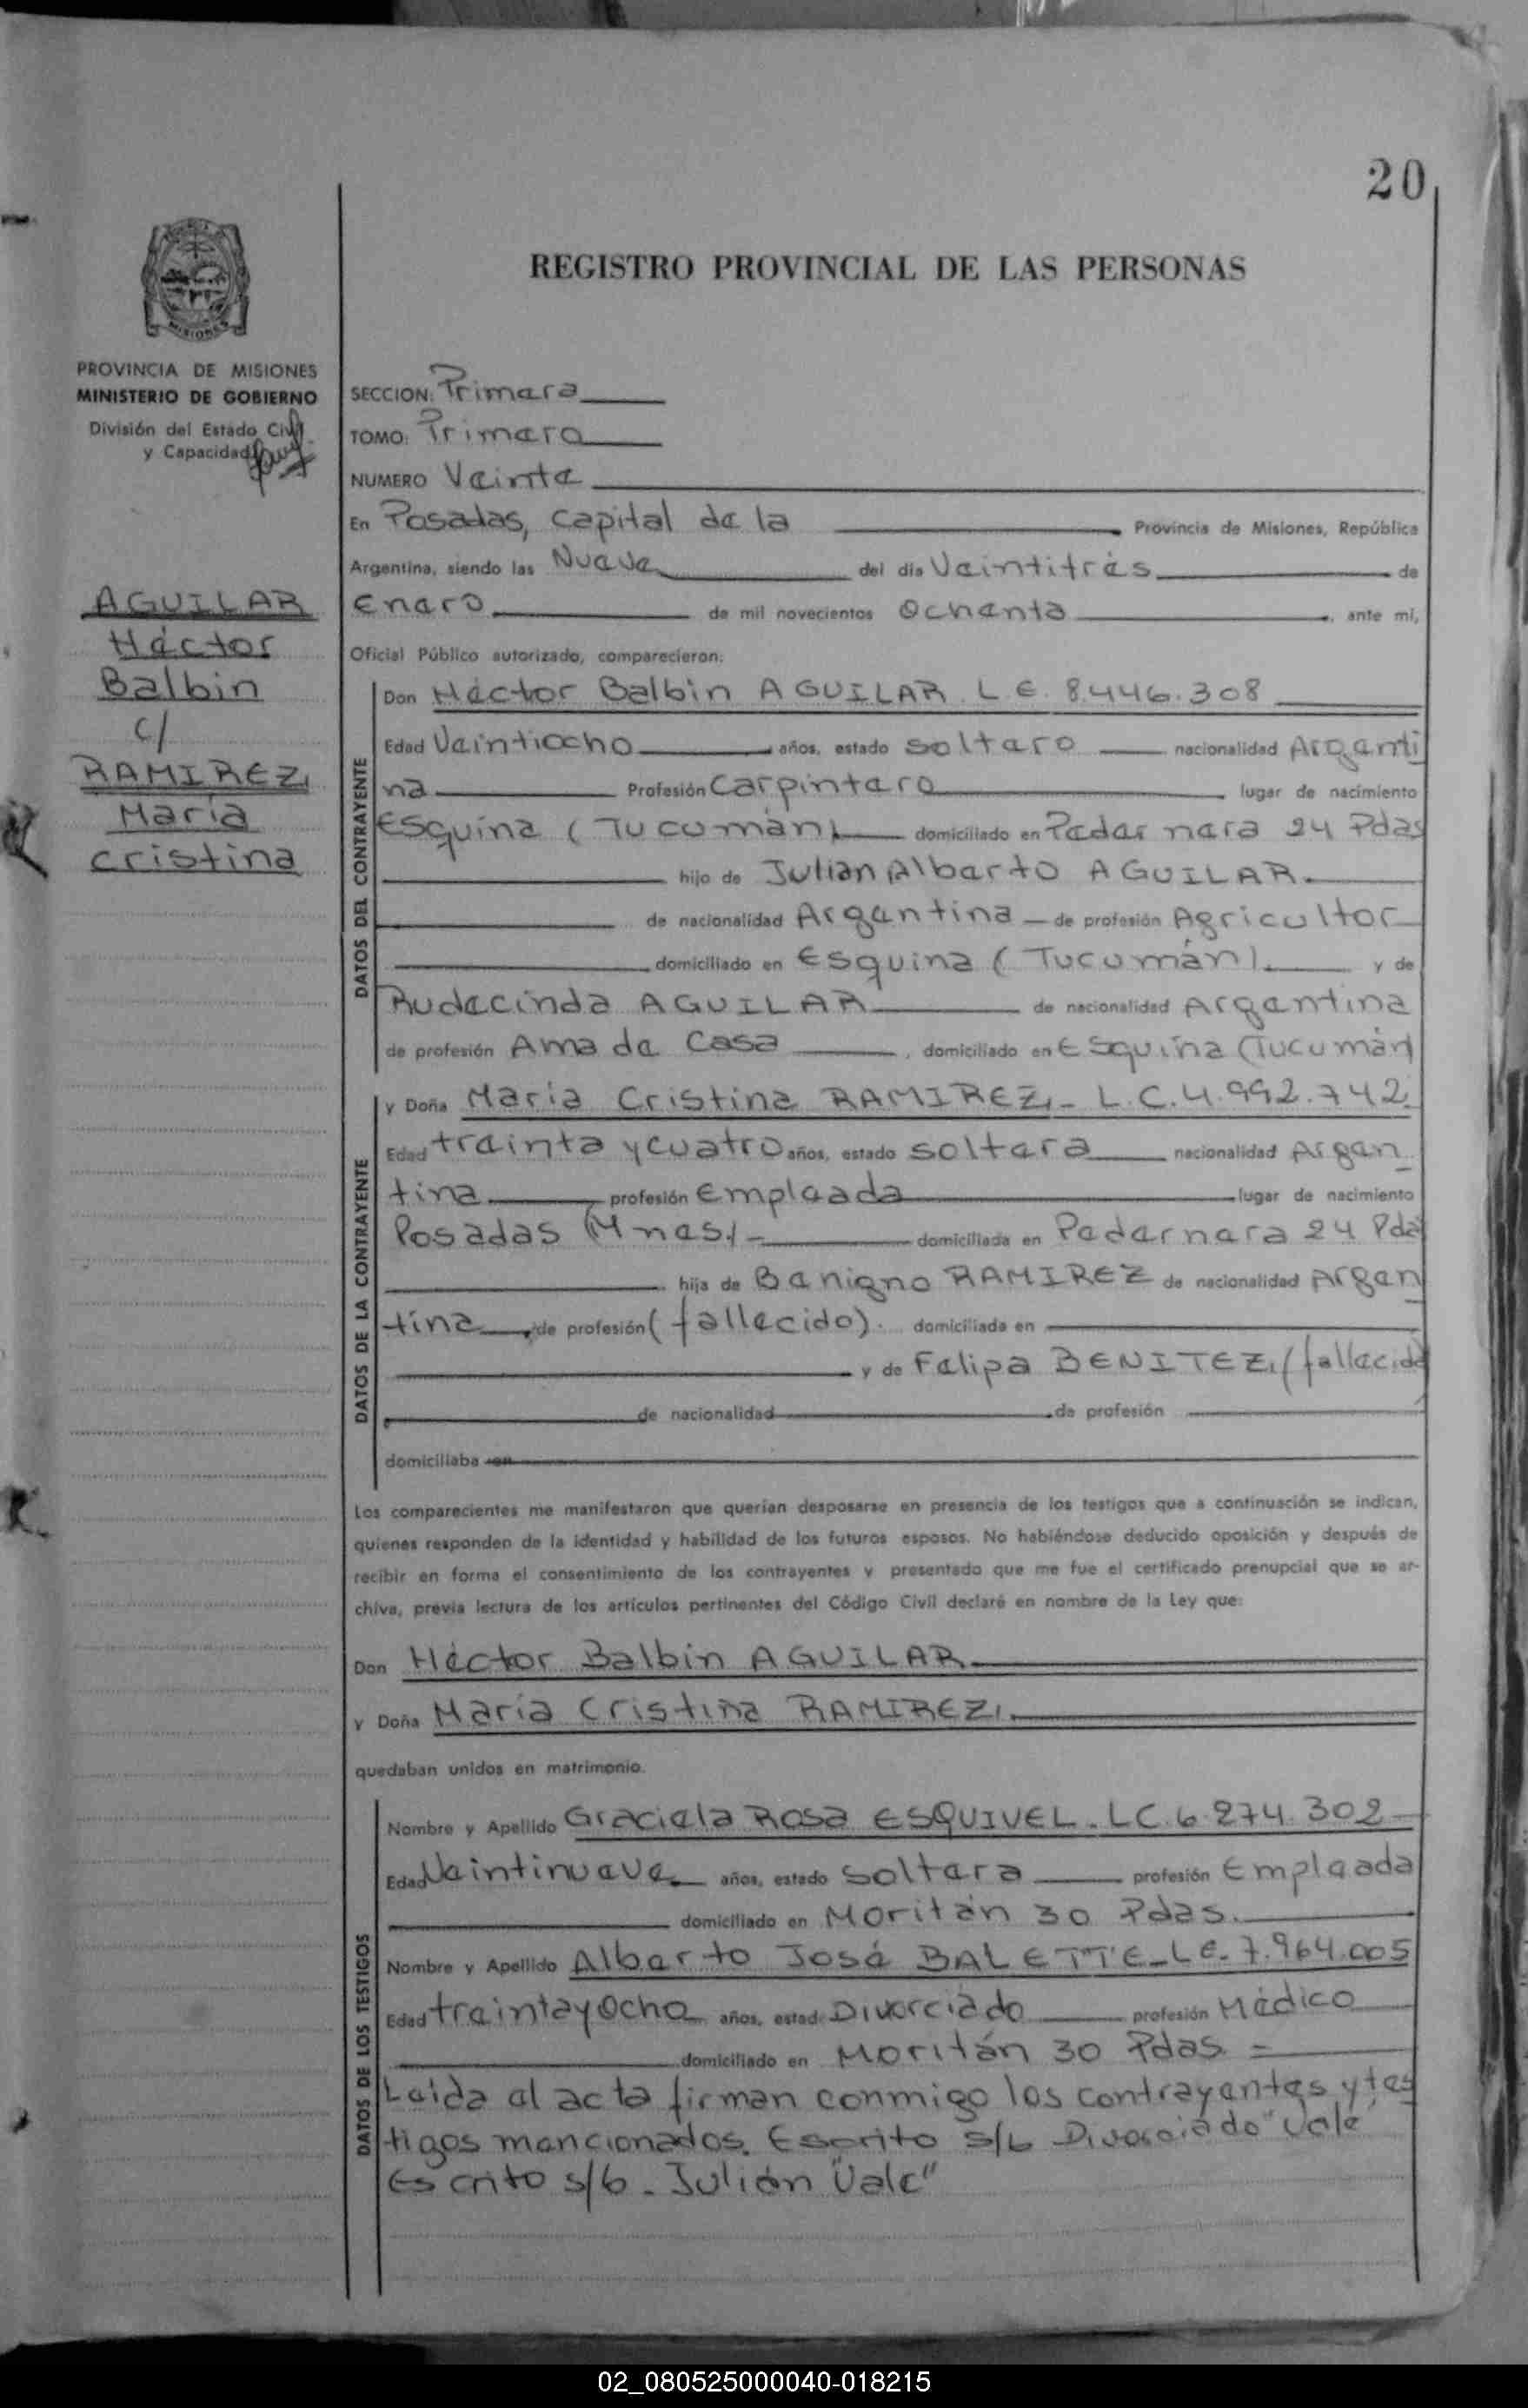 20
REGISTRO PROVINCIAL DE LAS PERSONAS
MISIONES
PROVINCIA DE MISIONES
MINISTERIO DE GOBIERNO
División del Estado Civil
y Capacidad
AGUILAR
Héctor
Balbin
c/
RAMIREZ,
María
Cristina
SECCION: Primera
TOMO: Primero
NUMERO Veinte
En Posadas, Capital de la Provincia de Misiones, República
Argentina, siendo las Nueve del día Veintitrés de
Enero de mil novecientos Ochenta, ante mí,
Oficial Público autorizado, comparecieron:
DATOS DEL CONTRAYENTE
Don Héctor Balbin AGUILAR. L.E. 8.446.308
Edad Veintiocho años, estado Soltero nacionalidad Argenti
na Profesión Carpintero lugar de nacimiento
Esquina (Tucumán) domiciliado en Pedernera 24 Pdas
hijo de Julian Alberto AGUILAR.
de nacionalidad Argentina de profesión Agricultor
domiciliado en Esquina (Tucumán). y de
Rudecinda AGUILAR de nacionalidad Argentina
de profesión Ama de Casa, domiciliado en Esquina (Tucumán)
DATOS DE LA CONTRAYENTE
y Doña María Cristina RAMIREZ,- L.C. 4.992.742.
Edad treinta y cuatro años, estado soltera nacionalidad Argen
tina profesión Empleada lugar de nacimiento
Posadas (Mnes).- domiciliada en Pedernera 24 Pdas
hija de Benigno RAMIREZ de nacionalidad Argen
tina, de profesión (fallecido). domiciliada en
y de Felipa BENITEZ, (fallecida
de nacionalidad de profesión
domiciliaba en
Los comparecientes me manifestaron que querían desposarse en presencia de los testigos que a continuación se indican,
quienes responden de la identidad y habilidad de los futuros esposos. No habiéndose deducido oposición y después de
recibir en forma el consentimiento de los contrayentes y presentado que me fue el certificado prenupcial que se ar-
chiva, previa lectura de los artículos pertinentes del Código Civil declaré en nombre de la Ley que:
Don Héctor Balbin AGUILAR.
y Doña María Cristina RAMIREZ,.
quedaban unidos en matrimonio.
DATOS DE LOS TESTIGOS
Nombre y Apellido Graciela Rosa ESQUIVEL. LC. 6.274.302
Edad Veintinueve años, estado Soltera profesión Empleada
domiciliado en Moritán 30 Pdas.
Nombre y Apellido Alberto José BALETTE_LE. 7.964.005
Edad treinta y Ocho años, estado Divorciado profesión Médico
domiciliado en Moritán 30 Pdas =
Leida el acta firman conmigo los contrayentes y tes
tigos mencionados. Escrito s/b Divorciado "Vale"
Escrito s/b - Julián "Vale"
02_080525000040-018215